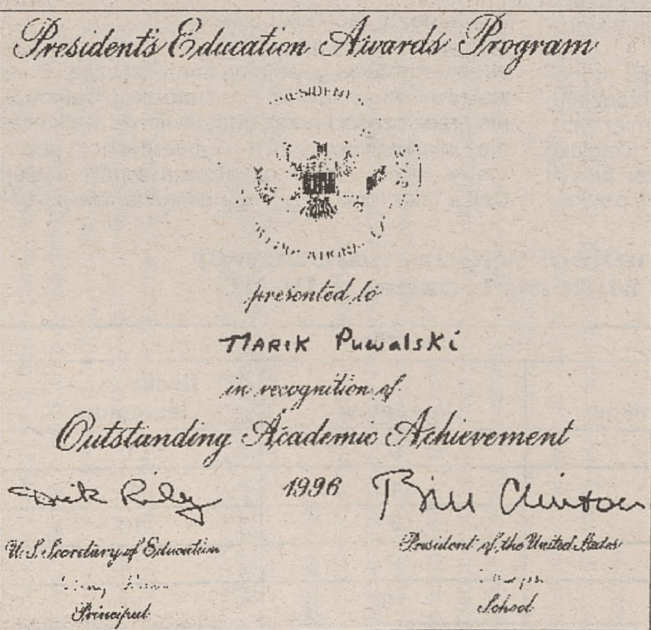 President's Education Awards Program
presented to
Marik Puwalski
in recognition of
Outstanding Academic Achievement
Dick Riley 1996 Bill Clinton
U.S. Secretary of Education President of the United States
Principal School